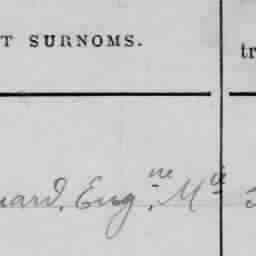 T SURNOMS.
tr
uard, Eugne. Mie